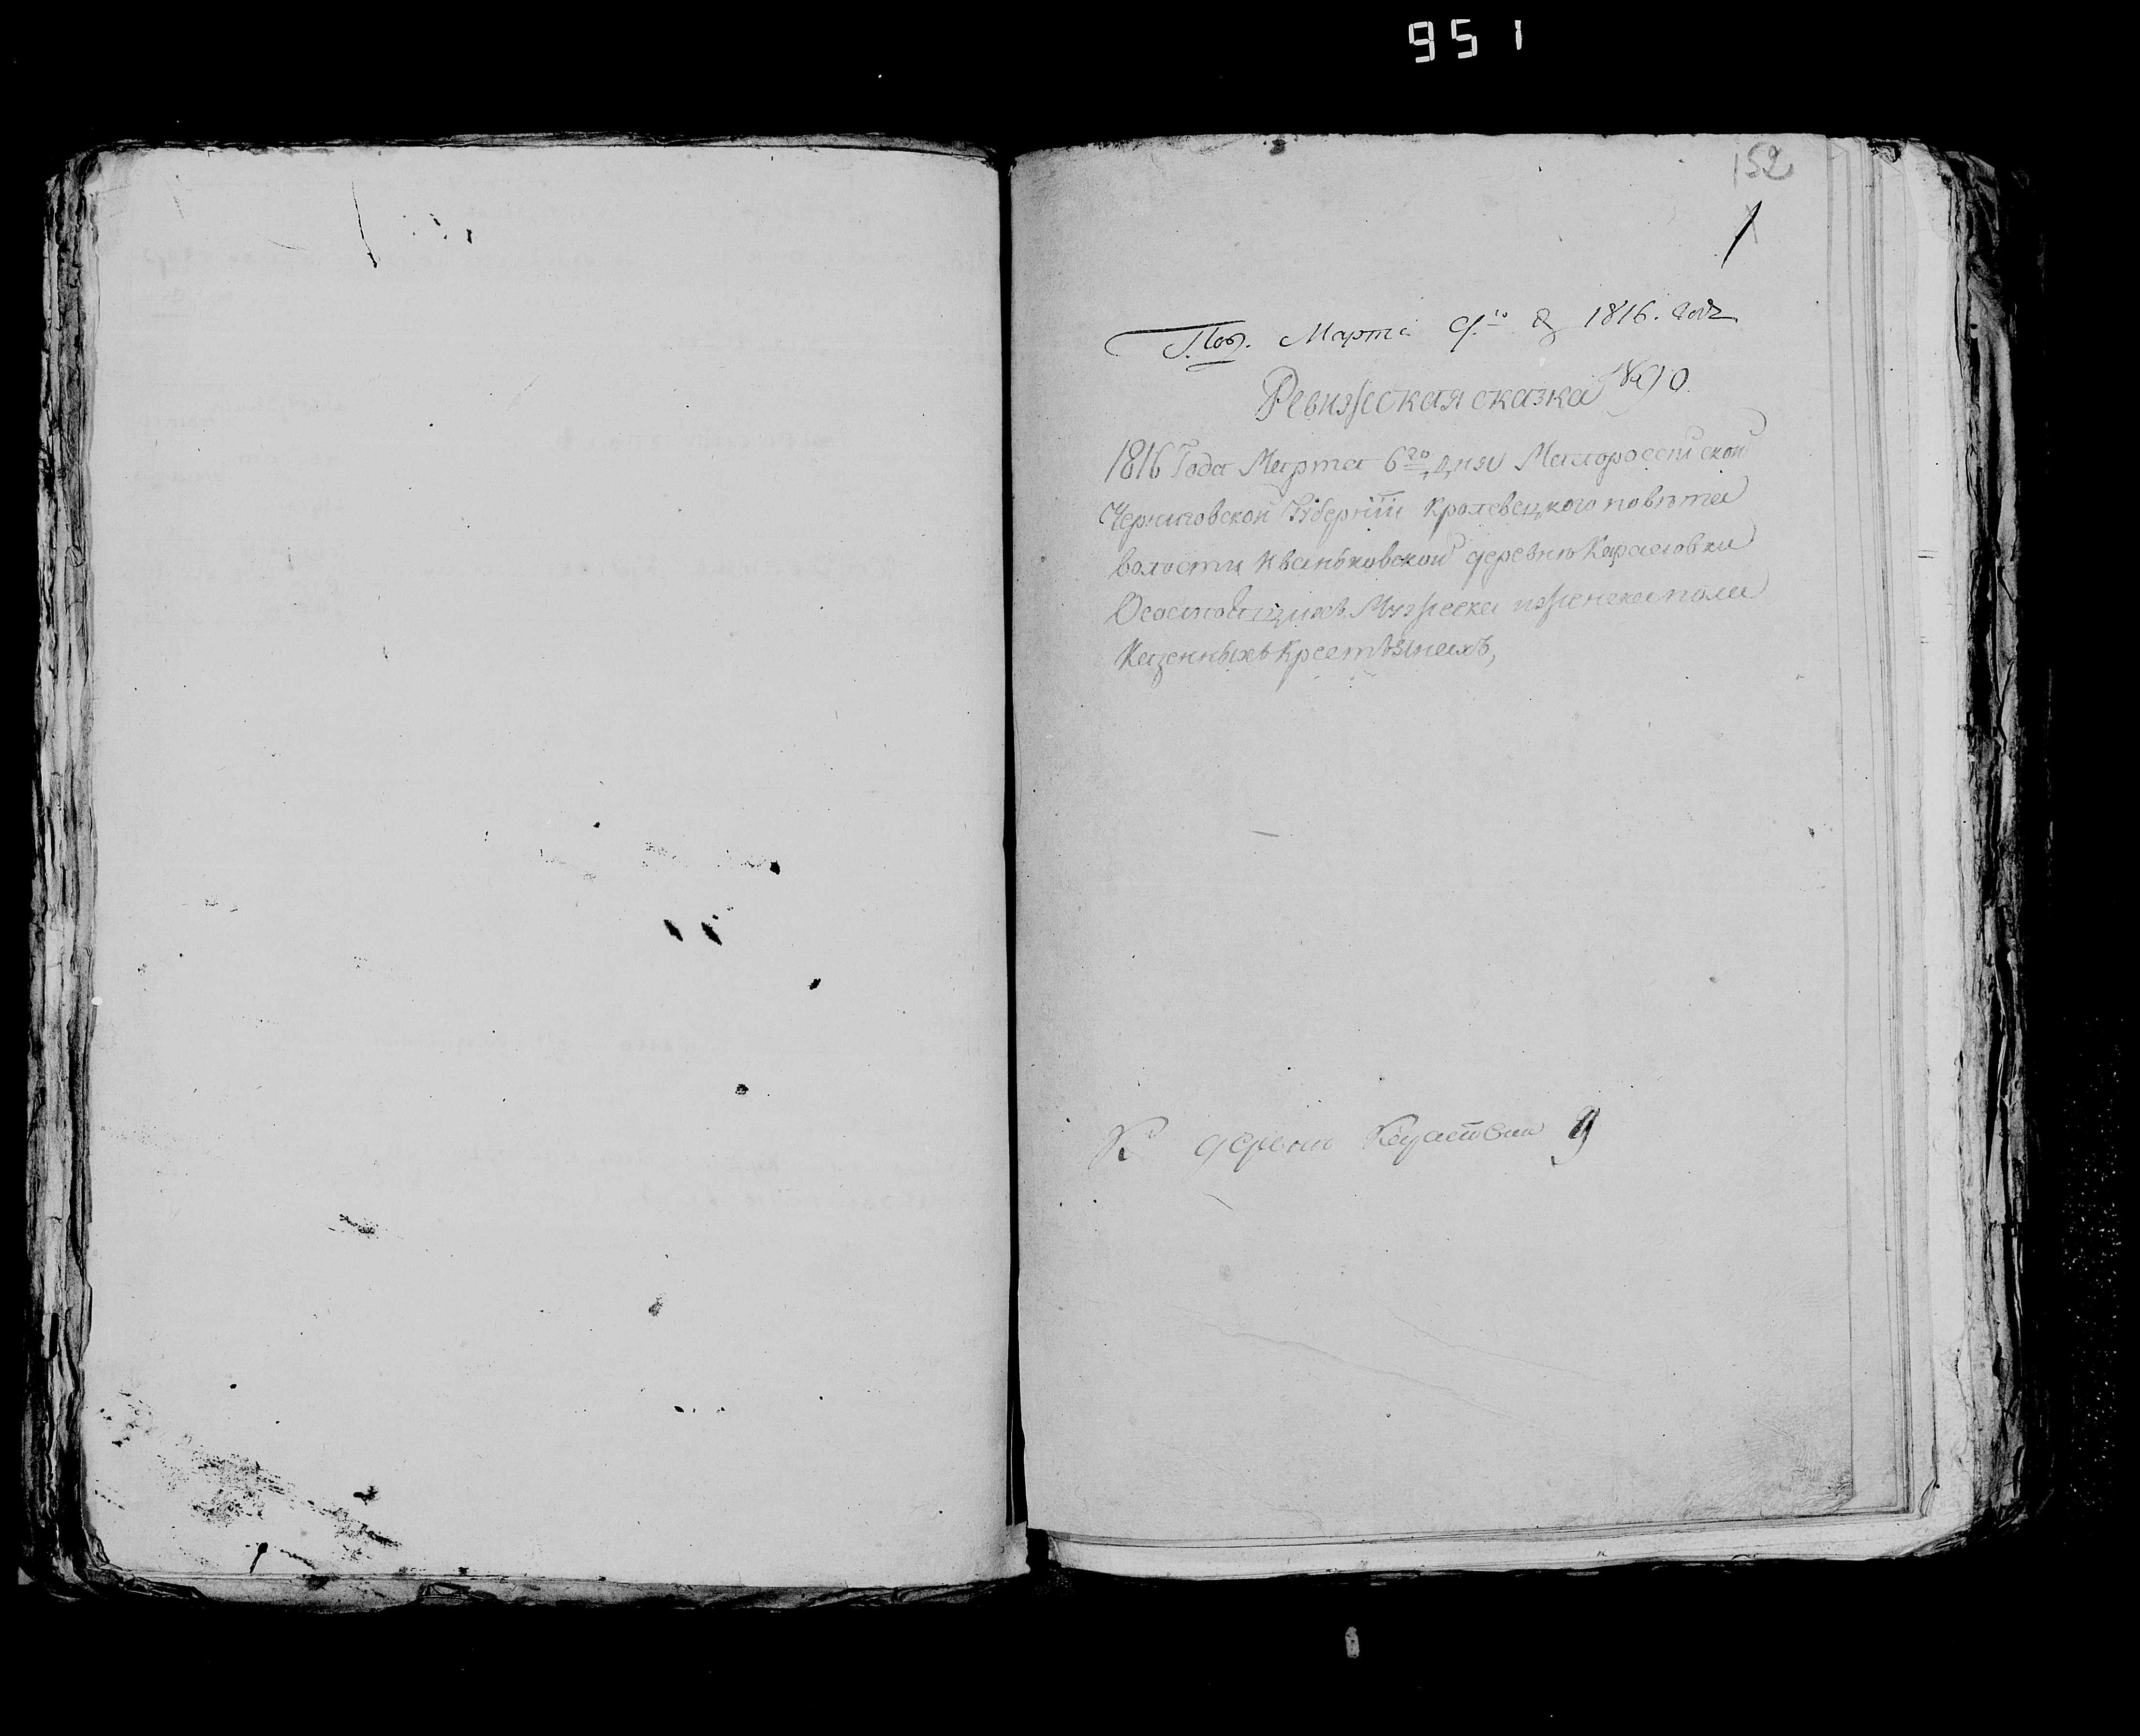 951
152
1
Пол. Марта 9.го д 1816. года
Ревизская сказка №90
1816 Года Марта 6го дня Малороссийской
Черниговской Губернїи Кролевецкого повета
волости Иваньковской деревни
О состоящихъ Мужеска и женска пола
Казенныхъ Крестьянахъ,
К деревни 9